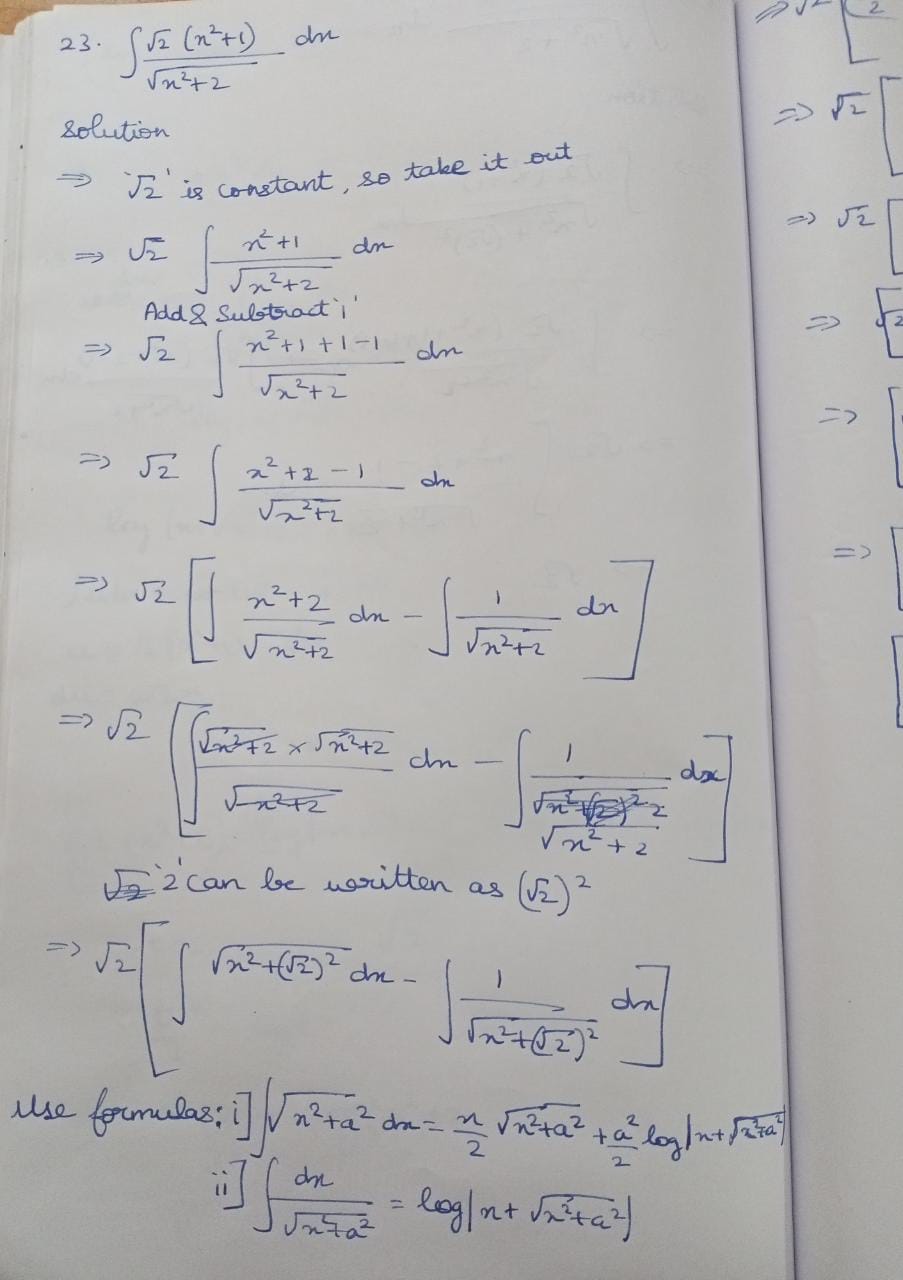 23. ∫ √2 (x²+1) / √x²+2 dx
Solution
⇒ '√2' is constant, so take it out
⇒ √2 ∫ x²+1 / √x²+2 dx
Add & Subtract '1'
⇒ √2 ∫ x²+1+1-1 / √x²+2 dx
⇒ √2 ∫ x²+2-1 / √x²+2 dx
⇒ √2 [∫ x²+2 / √x²+2 dx - ∫ 1 / √x²+2 dx]
⇒ √2 [∫ √x²+2 × √x²+2 / √x²+2 dx - ∫ 1 / √x²+2 dx]
'2' can be written as (√2)²
⇒ √2 [∫ √x²+(√2)² dx - ∫ 1 / √x²+(√2)² dx]
Use formulas: i] ∫ √x²+a² dx = x/2 √x²+a² + a²/2 log|x+√x²+a²|
ii] ∫ dx / √x²+a² = log|x+ √x²+a²|
⇒ √2 [ 2
⇒ √2 [
⇒ √2 [
⇒ [√2
⇒ [
⇒ [
[